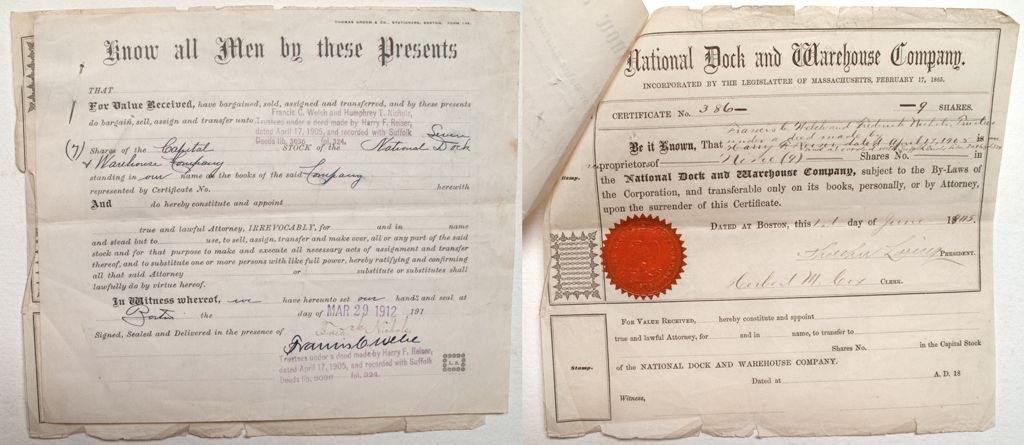 THOMAS GROOM & CO., STATIONERS, BOSTON. FORM
Know all Men by these Presents
THAT
For Value Received, have bargained, sold, assigned and transferred, and by these presents
Francis C. Welch and Humphrey T. Nichols,
do bargain, sell, assign and transfer unto
Trustees under a deed made by Harry F. Reiser,
dated April 17, 1905, and recorded with Suffolk
Deeds lib. 3036 fol. 324.
Seven
(7) Shares of the Capital STOCK of the National Dock
& Warehouse Company
standing in our name on the books of the said Company
represented by Certificate No. herewith
And do hereby constitute and appoint
true and lawful Attorney, IRREVOCABLY, for and in name
and stead but to use, to sell, assign, transfer and make over, all or any part of the said
stock and for that purpose to make and execute all necessary acts of assignment and transfer
thereof, and to substitute one or more persons with like full power, hereby ratifying and confirming
all that said Attorney or substitute or substitutes shall
lawfully do by virtue hereof.
In Witness whereof, we have hereunto set our hand and seal at
Boston the day of MAR 29 1912 191
Signed, Sealed and Delivered in the presence of
Nichols
Francis C Welch
Trustees under a deed made by Harry F. Reiser,
dated April 17, 1905, and recorded with Suffolk
Deeds lib. 3036 fol. 324.
L.S.
National Dock and Warehouse Company.
INCORPORATED BY THE LEGISLATURE OF MASSACHUSETTS, FEBRUARY 17, 1865.
CERTIFICATE NO. 386 — 9 SHARES.
Francis C. Welch and Frederick Nichols, Trustees
under a deed made by
Be it Known, That Harry F. Reiser, dated April 17, 1905 is
proprietors of Nine (9) Shares No. in
the National Dock and Warehouse Company, subject to the By-Laws of
the Corporation, and transferable only on its books, personally, or by Attorney,
upon the surrender of this Certificate.
Stamp.
DATED AT BOSTON, this 1st day of June 1905.
PRESIDENT.
Herbert M. Cox CLERK.
FOR VALUE RECEIVED, hereby constitute and appoint
true and lawful Attorney, for and in name, to transfer to
Shares No. in the Capital Stock
of the NATIONAL DOCK AND WAREHOUSE COMPANY.
Stamp.
Dated at A. D. 18
Witness,